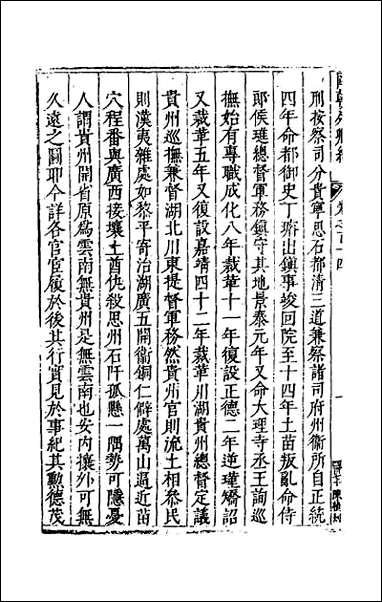 刑按察司分貴寧思石都清三道兼察諸司府州衞所自正統
四年命都御史丁璿出鎭事竣回院至十四年土苗叛亂命侍
郎侯璡總督軍務鎭守其地景泰元年又命大理寺丞王詢巡
撫始有專職成化八年裁革十一年復設正德二年逆瑾矯詔
又裁革五年又復設嘉靖四十二年裁革川湖貴州總督定議
貴州巡撫兼督湖北川東提督軍務然貴州官則流土相叅民
則漢夷雜處如黎平寄治湖廣五開衞銅仁僻處萬山逼近苗
穴程番與廣西接壤土酋仇殺思州石阡孤懸一隅勢可隱憂
人謂貴州開省原爲雲南無貴州是無雲南也安內攘外可無
久遠之圖耶今詳各官宦履於後其行實見於事紀其勲德茂